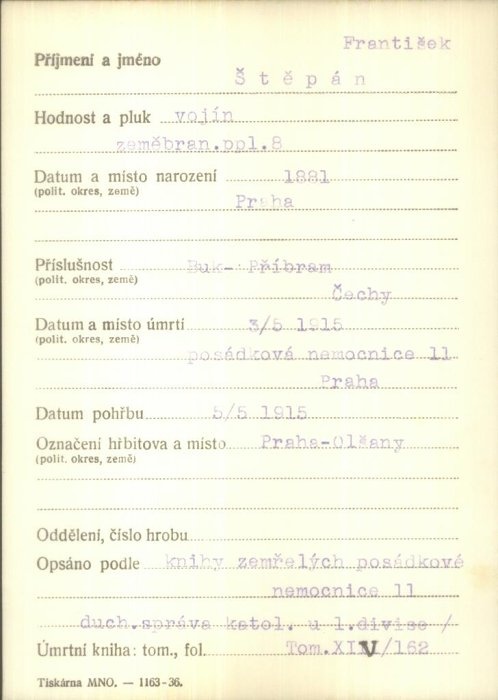 František
Příjmení a jméno
Štěpán
Hodnost a pluk vojín
zeměbran.ppl.8
Datum a místo narození 1881
(polit. okres, země)
Praha
Příslušnost Buk- Příbram
(polit. okres, země)
Čechy
Datum a místo úmrtí 3/5 1915
(polit. okres, země)
posádková nemocnice 11
Praha
Datum pohřbu 5/5 1915
Označení hřbitova a místo Praha-Olšany
(polit. okres, země)
Oddělení, číslo hrobu
Opsáno podle knihy zemřelých posádkové
nemocnice 11
duch.správa katol. u 1.divise /
Úmrtní kniha: tom., fol. Tom.XIV/162
Tiskárna MNO. — 1163-36.